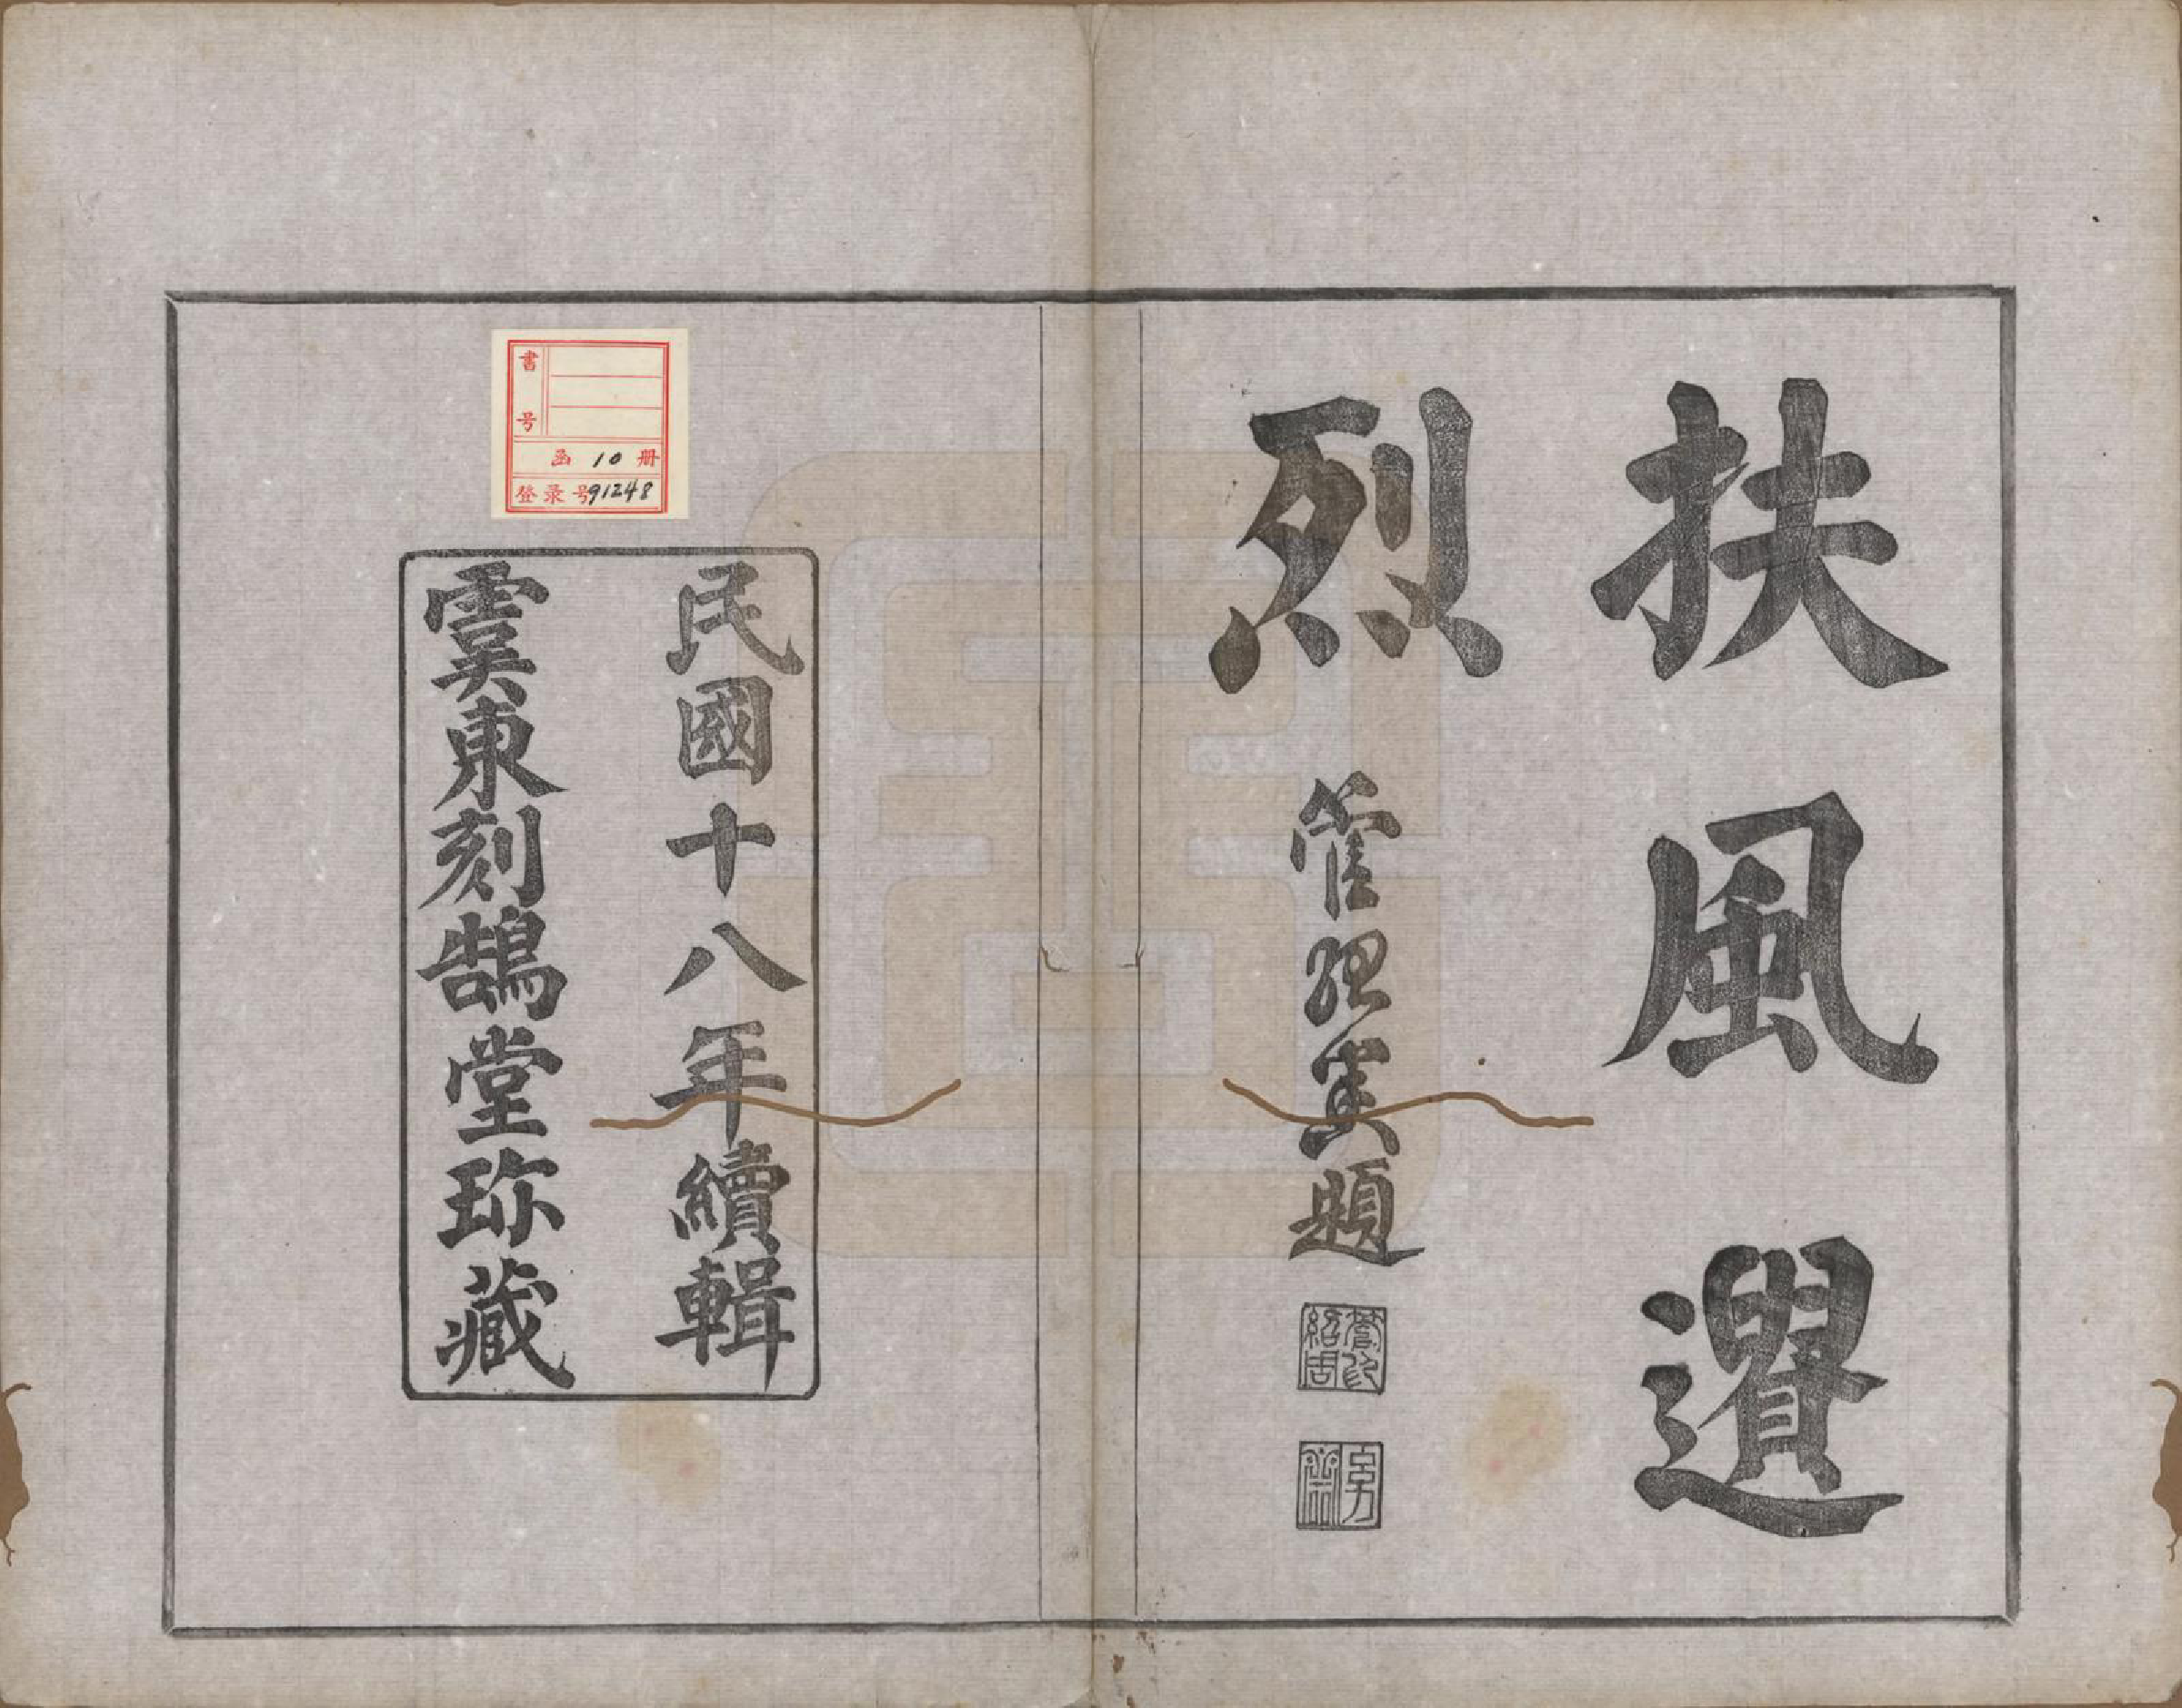 扶風遺
烈
管理實題
民國十八年續輯
雲東刻鵠堂珎藏
書号
函 10 册
登录号 91248